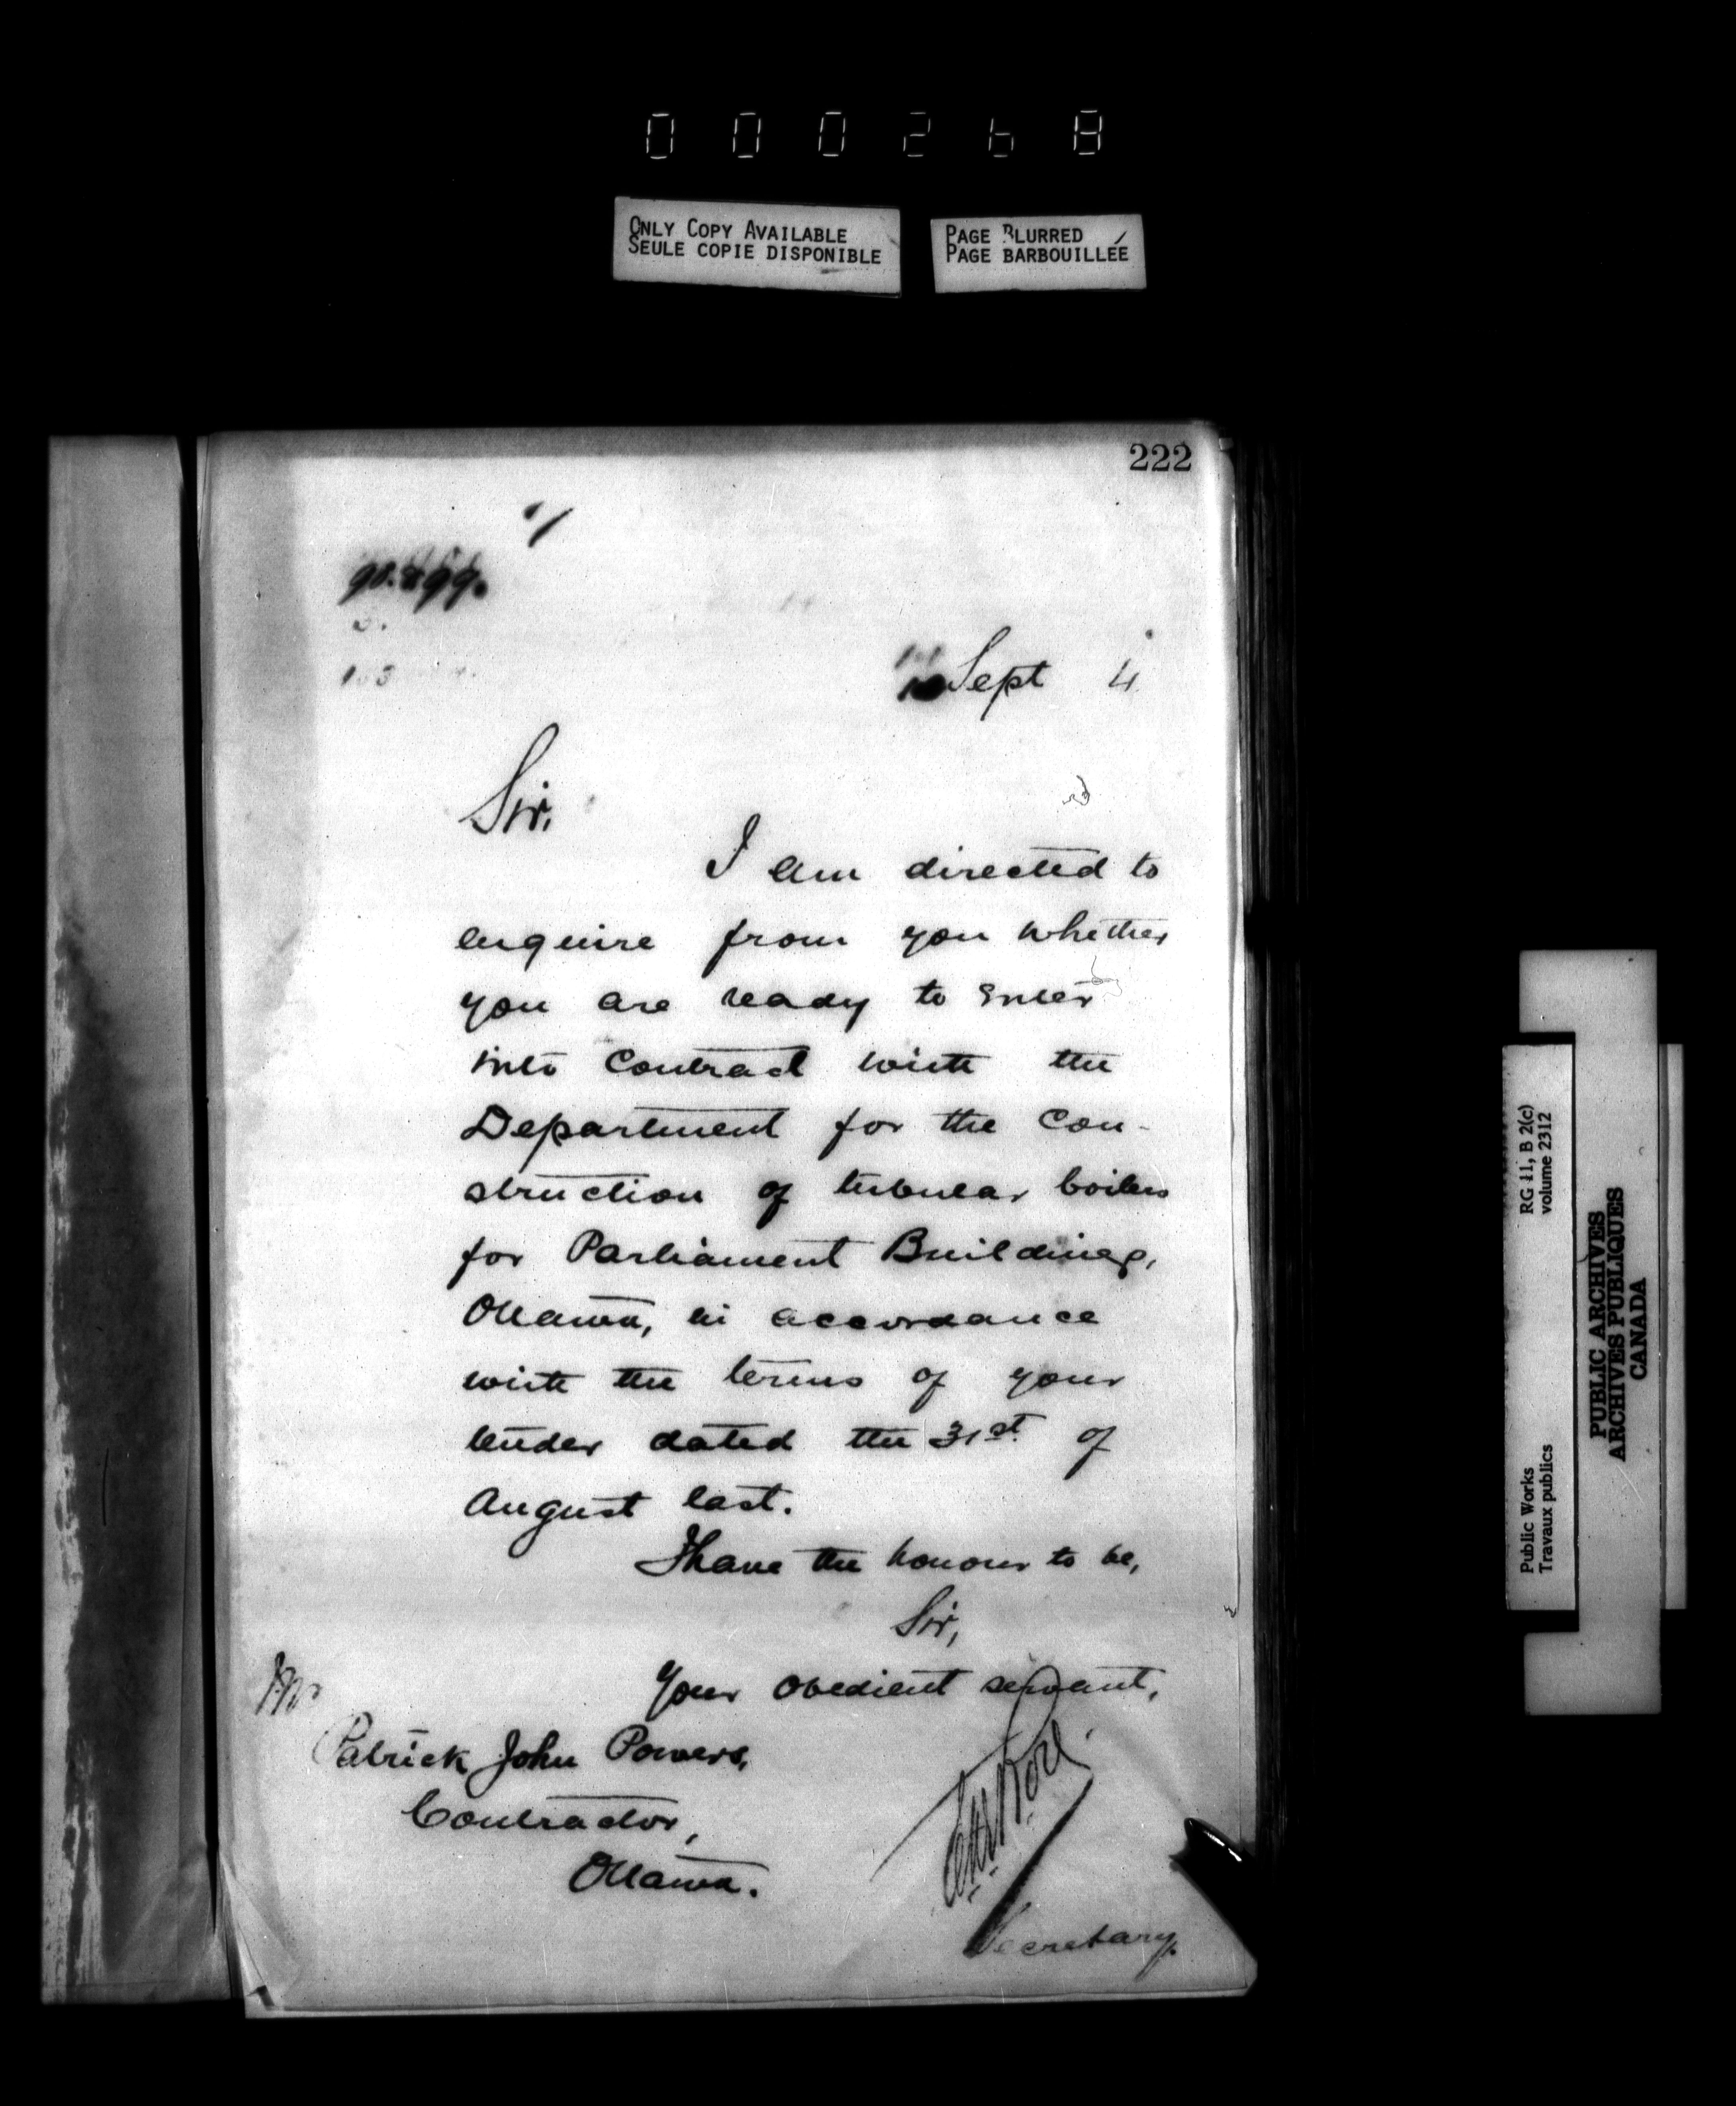 000268
ONLY COPY AVAILABLE
SEULE COPIE DISPONIBLE
PAGE BLURRED
PAGE BARBOUILLÉE
222
Sept 4
Sir,
I am directed to
enquire from you whether
you are ready to enter
into Contract with the
Department for the Con-
struction of tubular boilers
for Parliament Buildings,
Ottawa, in accordance
with the terms of your
tender dated the 31st of
August last.
I have the honour to be,
Sir,
Your obedient servant,
Mr
Patrick John Powers,
Contractor,
Ottawa.
Secretary.
Public Works
Travaux publics
RG 11, B 2(c)
volume 2312
PUBLIC ARCHIVES
ARCHIVES PUBLIQUES
CANADA